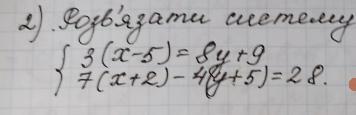 2). Розв'язати систему
{ 3(x-5)=8y+9
7(x+2)-4(y+5)=28.